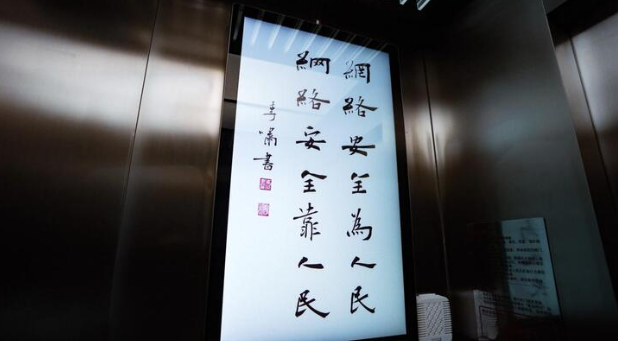 網絡安全為人民
網絡安全靠人民